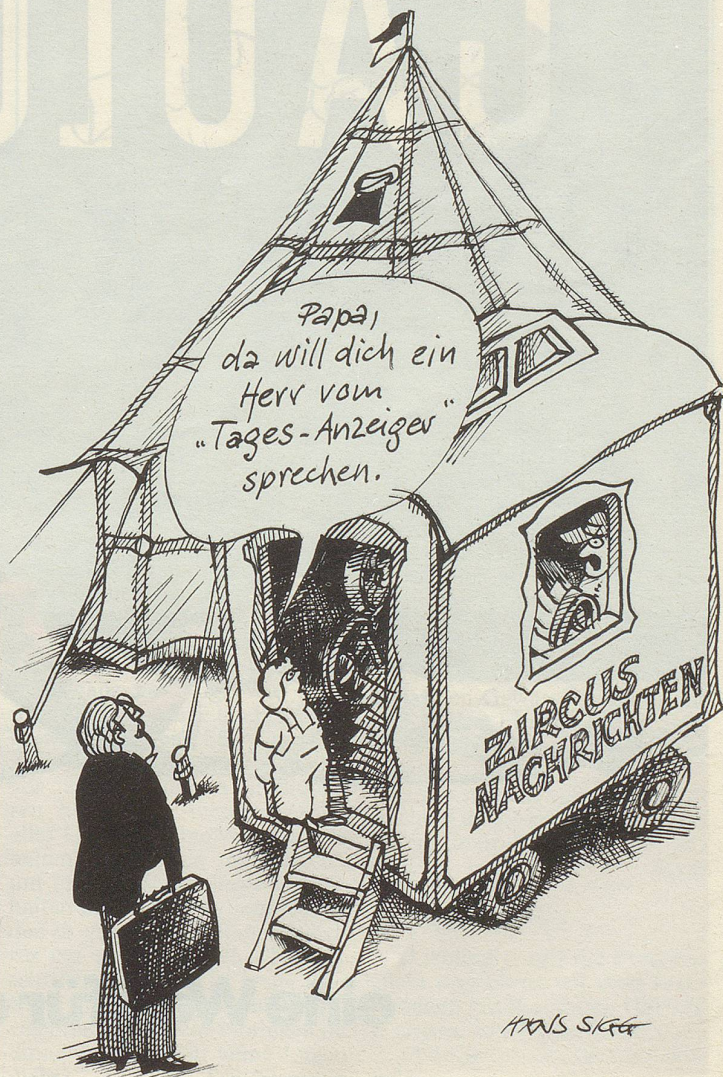 Papa,
da will dich ein
Herr vom
„Tages-Anzeiger“
sprechen.
ZIRCUS
NACHRICHTEN
HANS SIGG